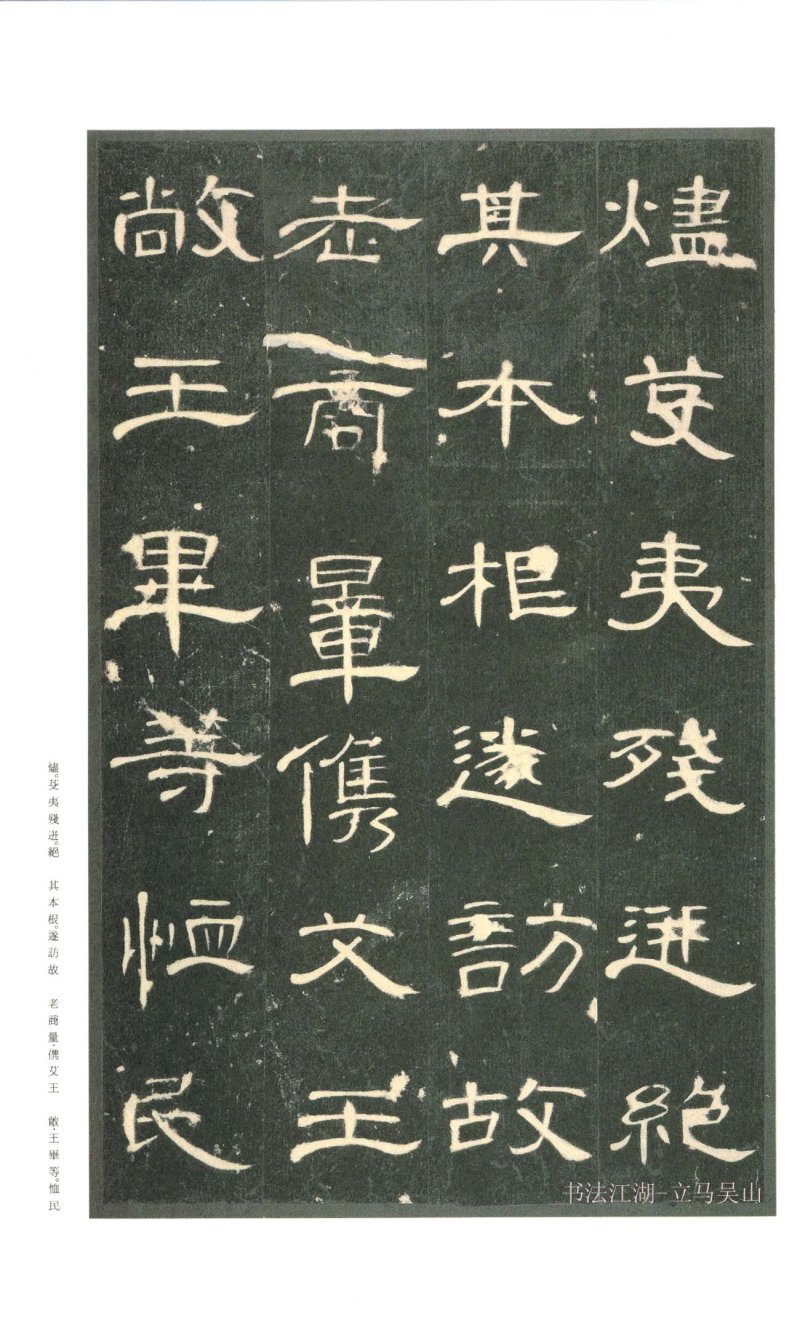 燼芟夷殘迸絕
其本根遂訪故
老商量儁艾王
敞王畢等恤民
燼。芟夷殘迸。絕 其本根。遂訪故 老商量·儁艾王 敞·王畢等。恤民
书法江湖-立马吴山